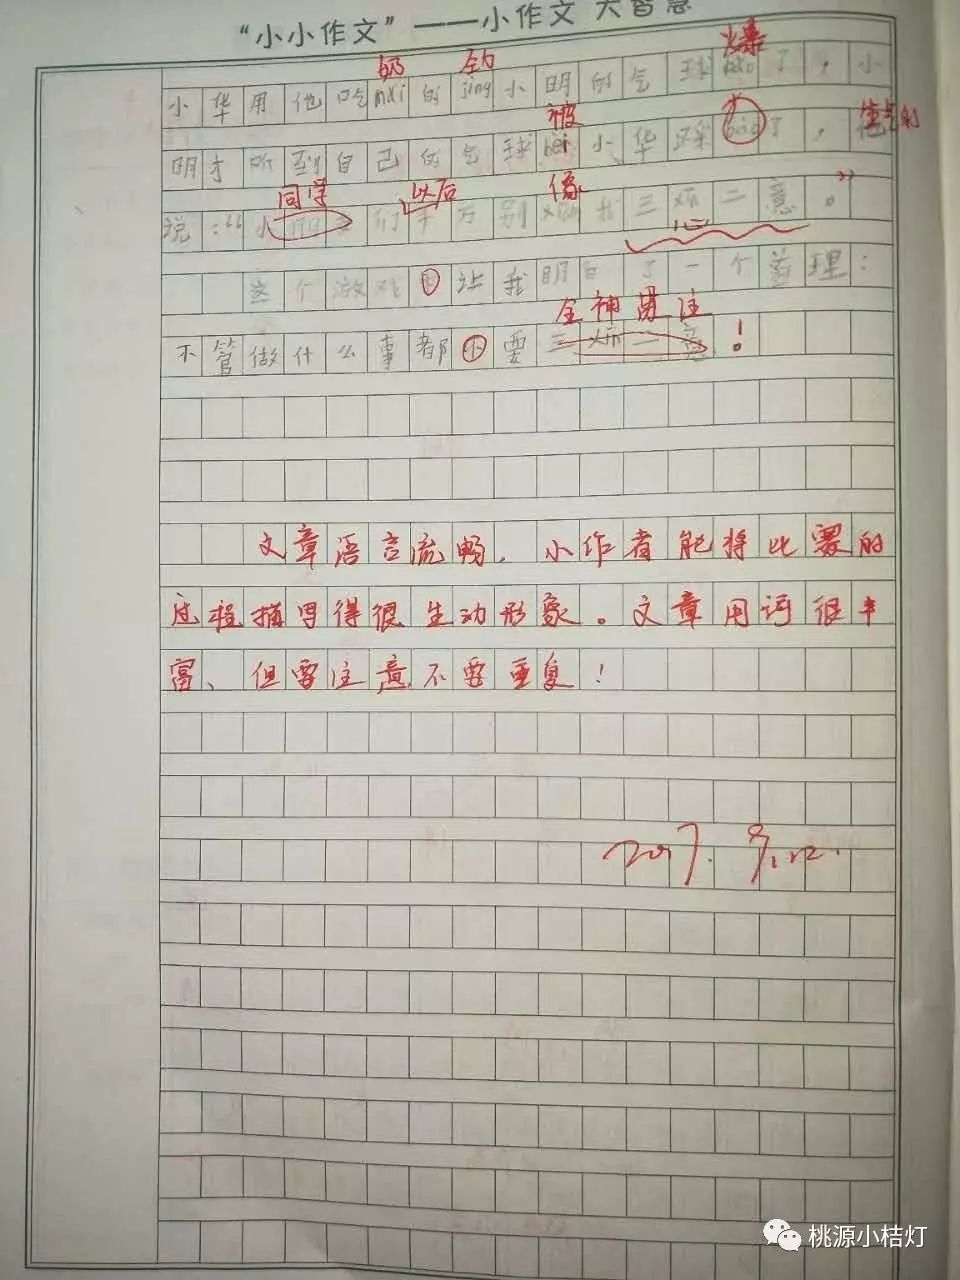 “小小作文”——小作文 大智慧
奶 的 爆
小华用他吃nai的jing小明的气球bao了，小
被 生气的
明才听到自己的气球bei小华踩bao了，他
同学 以后 像
说：“小们千万别xiang我三心二意。”
心
这个游戏让我明白了一个道理：
全神贯注
不管做什么事都不要三心二意！
文章语言流畅，小作者能将比赛的
过程描写得很生动形象。文章用词很丰
富、但要注意不要重复！
2017. 9.22.
桃源小桔灯